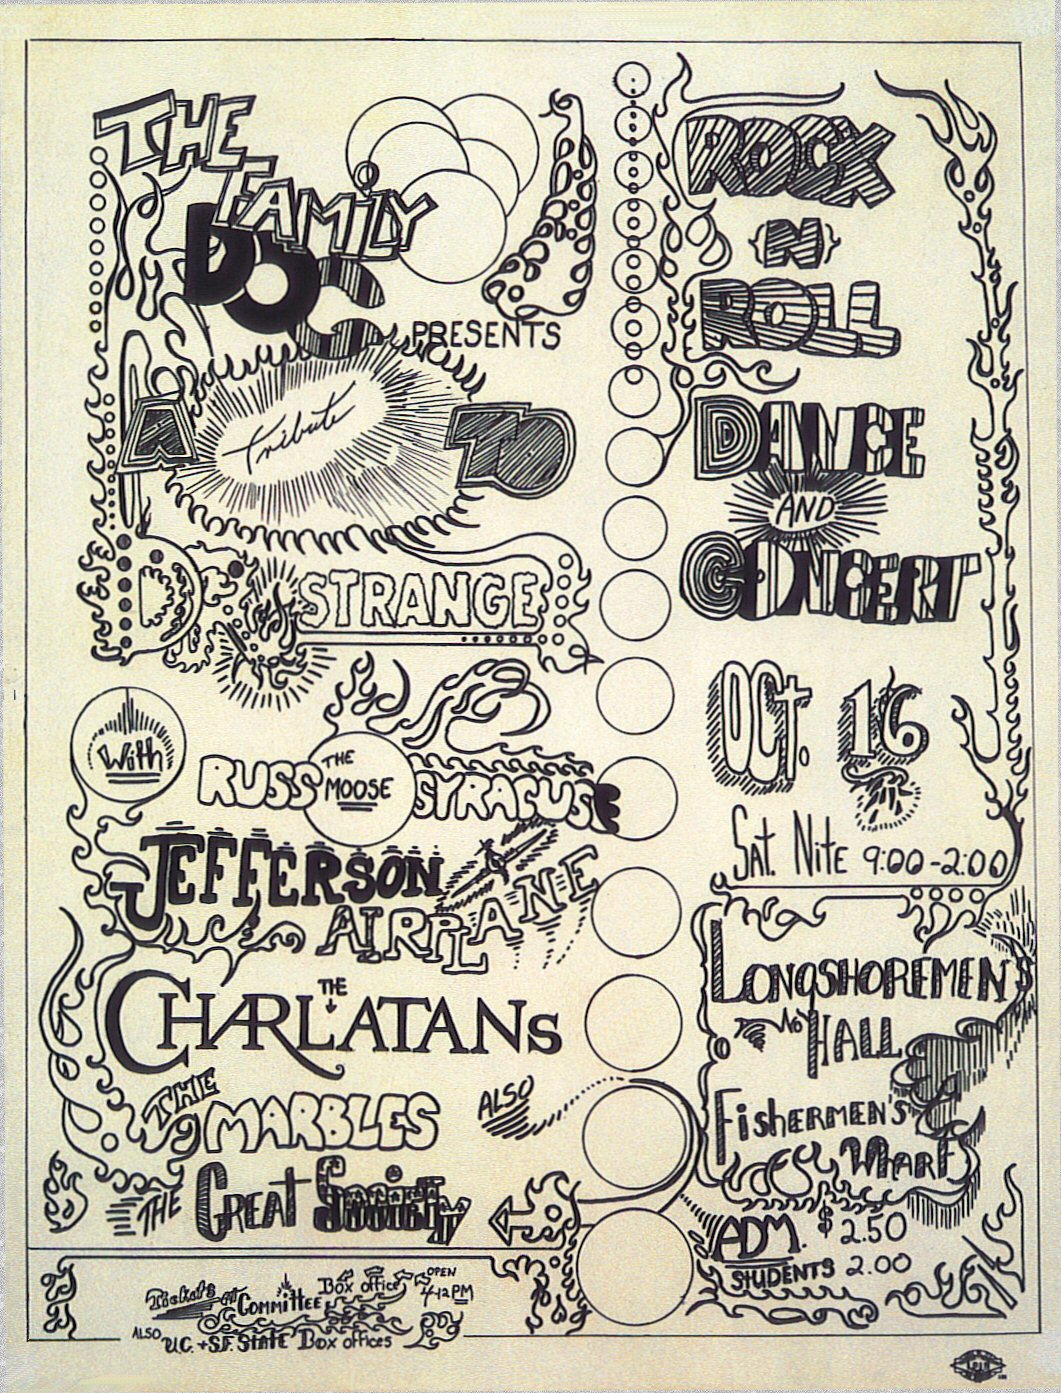 THE
FAMILY
DOG
PRESENTS
A Tribute TO
Dr. STRANGE
With
RUSS THE MOOSE SYRACUSE
JEFFERSON
AIRPLANE
THE
CHARLATANS
THE MARBLES
ALSO
THE GREAT Society
Tickets at Committee Box office OPEN 4-12 PM
ALSO U.C. + S.F. STATE Box offices
ROCK
N
ROLL
DANCE
AND
CONCERT
OCT. 16
SAT. NITE 9:00-2:00
LONGSHOREMEN'S
HALL
FISHERMEN'S
WHARF
ADM. $2.50
STUDENTS 2.00